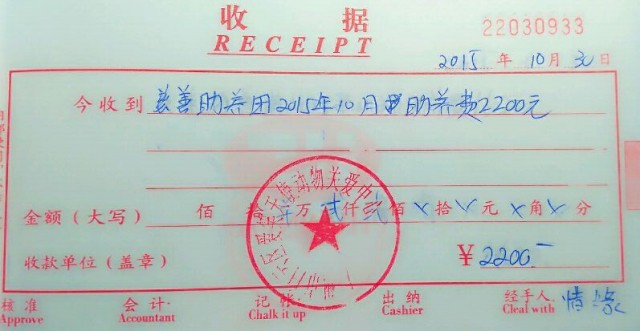 收 据
RECEIPT
22030933
2015 年 10 月 30 日
今收到 慈善助养团2015年10月助养费2200元
金额（大写） 佰 拾 万 贰仟 贰佰 × 拾 × 元 × 角 × 分
收款单位（盖章） ¥ 2200-
核准 会计 记帐 出纳 经手人 情缘
Approve Accountant Chalk it up Cashier Cleal with
动物关爱中